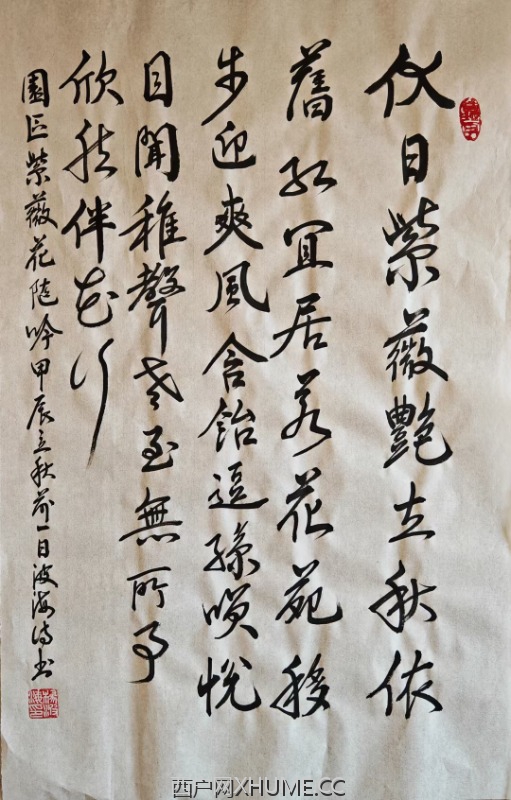 伏日紫薇艷立秋依
舊紅宜居若花苑移
步迎爽風含飴逗孫唳悅
目聞稚聲老至無所事
欣然伴花行
園区紫薇花随吟甲辰立秋前一日波海诗书
西户网XHUME.CC